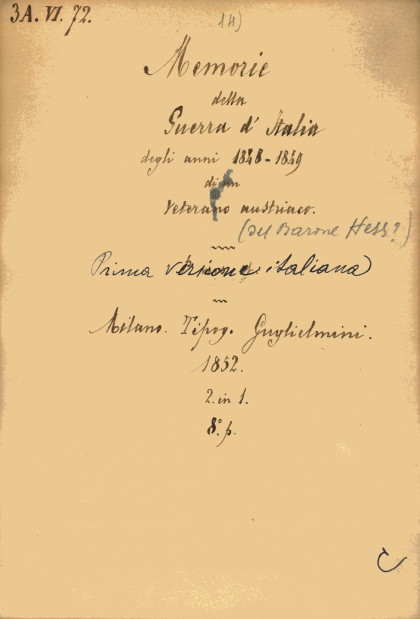 3A. VI. 72.
14)
Memorie
della
Guerra d'Italia
degli anni 1848-1849
di un
Veterano austriaco.
(del Barone Hess?)
Prima versione italiana
Milano. Tipog. Guglielmini.
1852.
2. in 1.
8.° p.